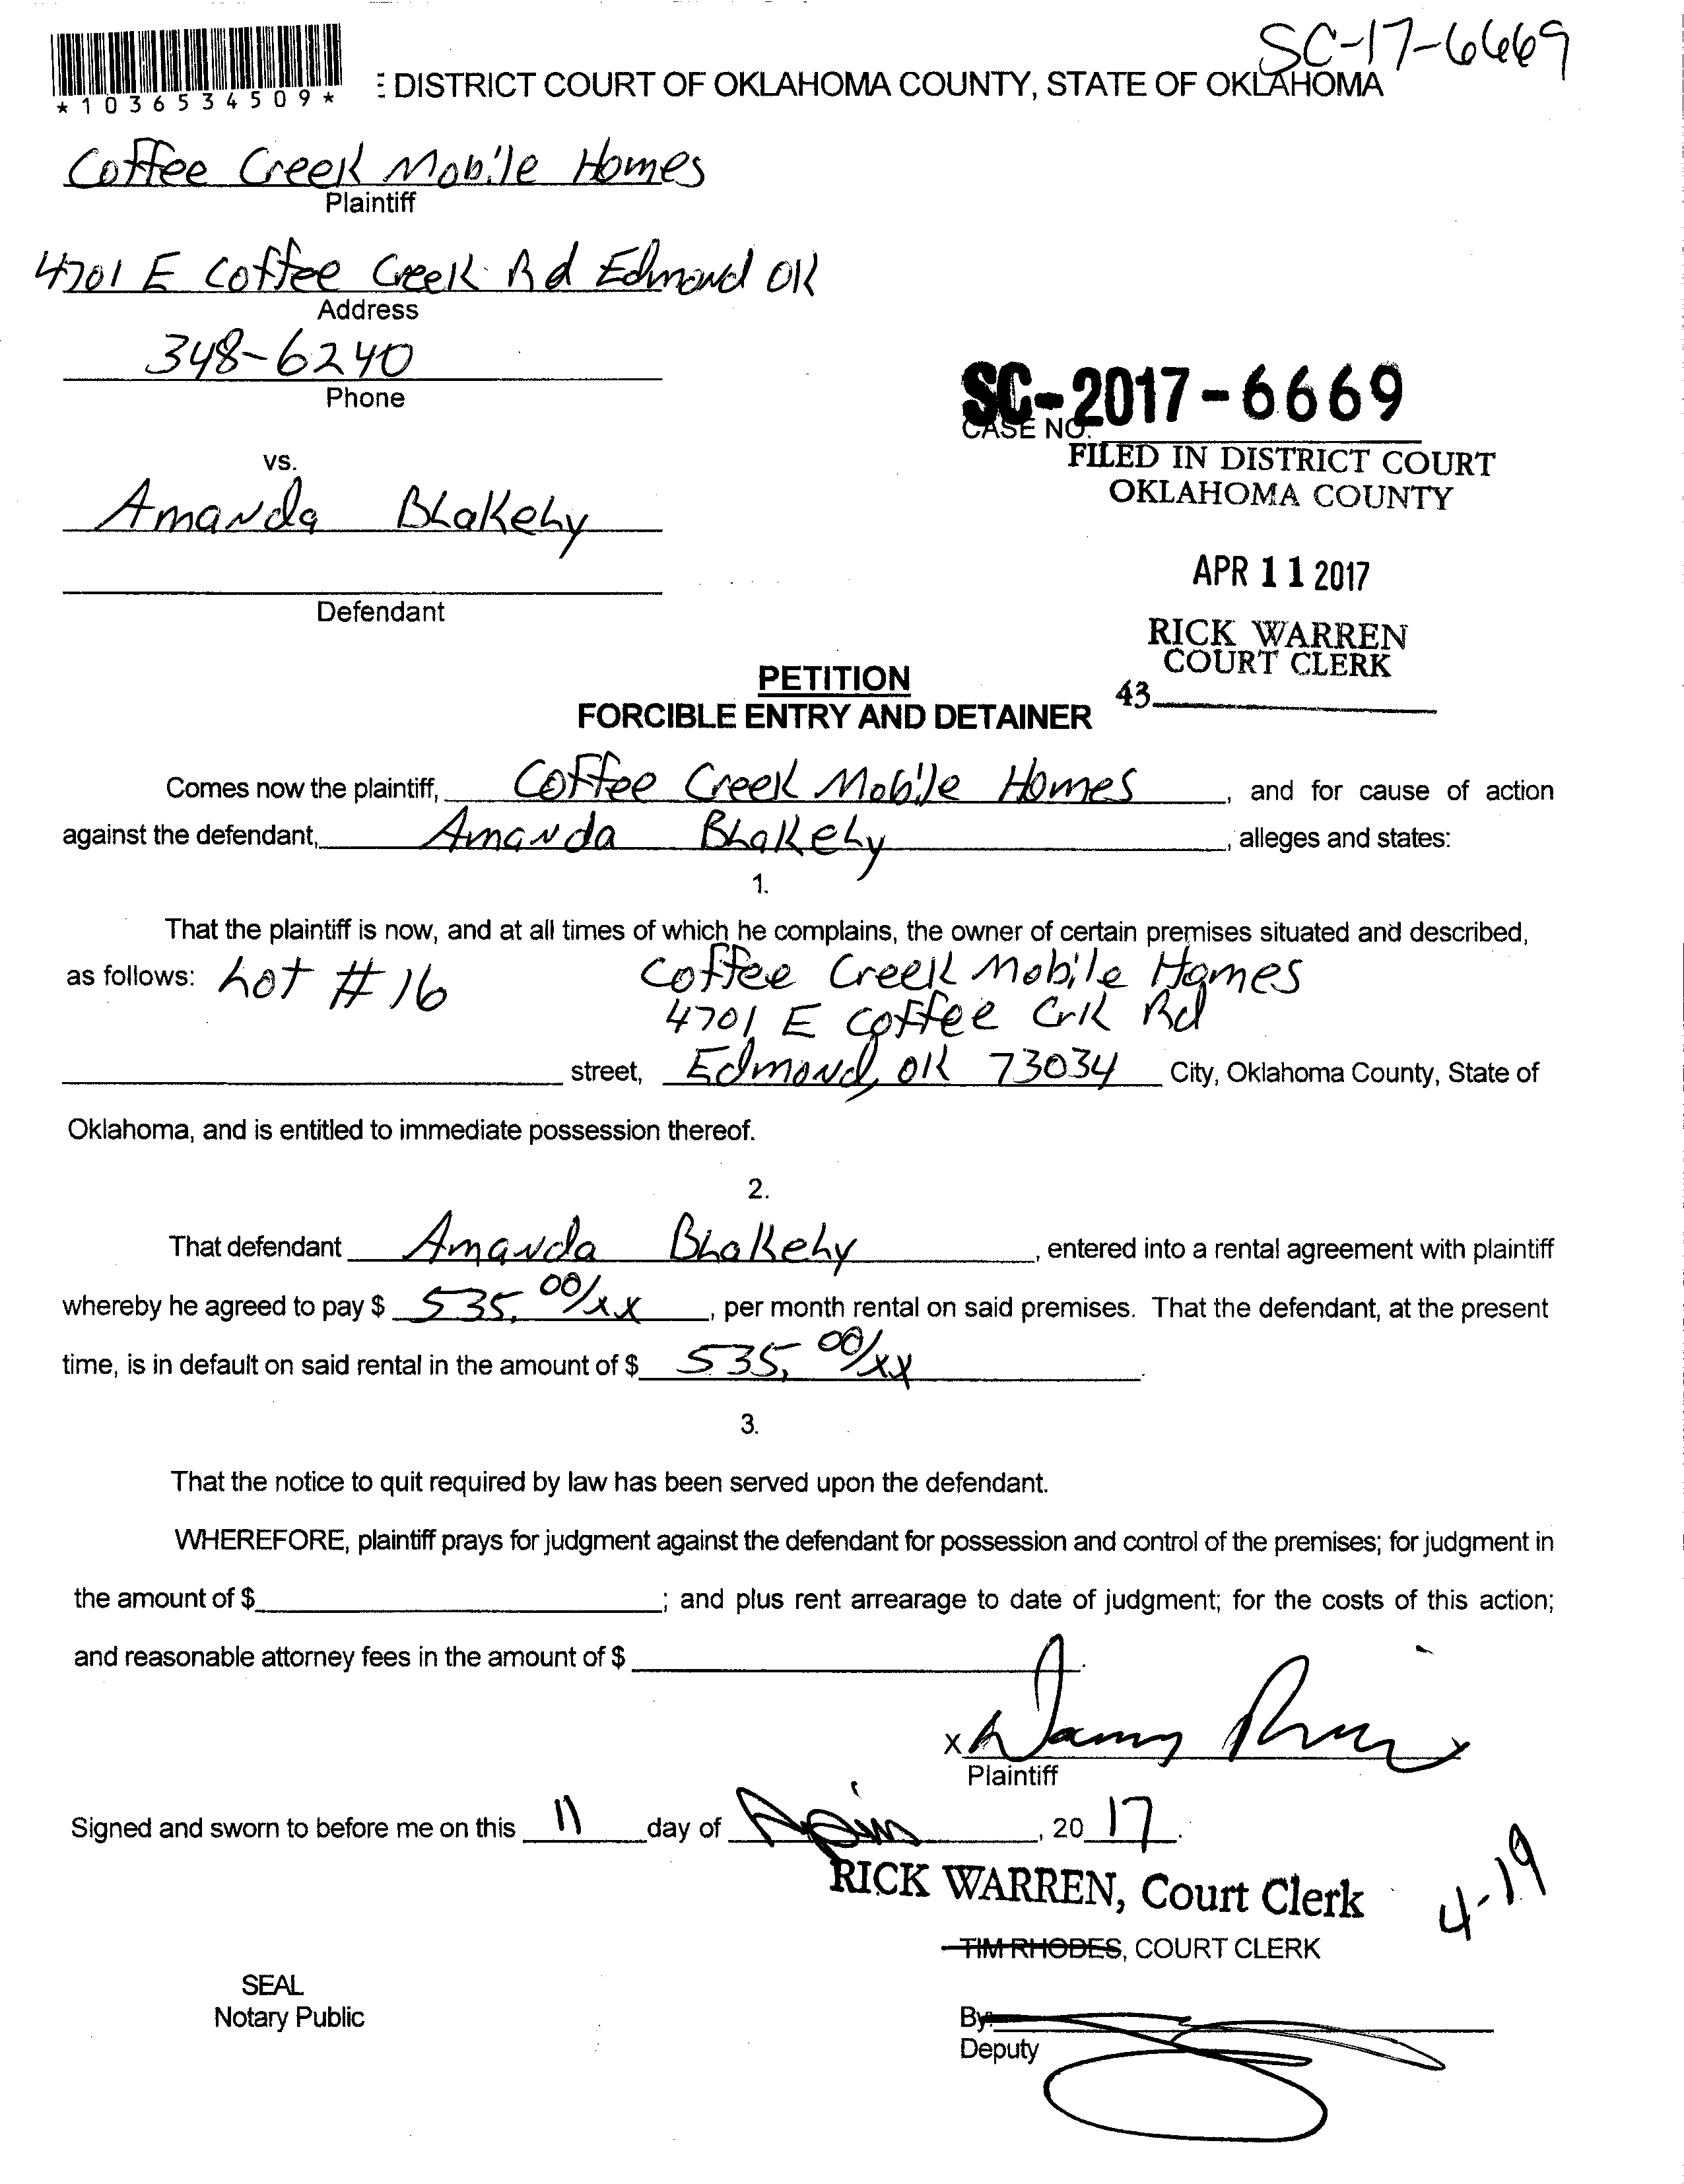 SC-17-6669
*1036534509*
DISTRICT COURT OF OKLAHOMA COUNTY, STATE OF OKLAHOMA
Coffee Creek Mobile Homes
Plaintiff
4701 E Coffee Creek Rd Edmond OK
Address
348-6240
Phone
SC-2017-6669
CASE NO.
FILED IN DISTRICT COURT
OKLAHOMA COUNTY
vs.
Amanda BLakeLy
APR 11 2017
Defendant
RICK WARREN
COURT CLERK
43
PETITION
FORCIBLE ENTRY AND DETAINER
Comes now the plaintiff, Coffee Creek Mobile Homes, and for cause of action
against the defendant, Amanda BLakeLy, alleges and states:
1.
That the plaintiff is now, and at all times of which he complains, the owner of certain premises situated and described,
as follows: Lot #16 Coffee Creek Mobile Homes
4701 E Coffee Crk Rd
street, Edmond, OK 73034 City, Oklahoma County, State of
Oklahoma, and is entitled to immediate possession thereof.
2.
That defendant Amanda BLakeLy, entered into a rental agreement with plaintiff
whereby he agreed to pay $ 535.00/xx, per month rental on said premises. That the defendant, at the present
time, is in default on said rental in the amount of $ 535.00/xx.
3.
That the notice to quit required by law has been served upon the defendant.
WHEREFORE, plaintiff prays for judgment against the defendant for possession and control of the premises; for judgment in
the amount of $; and plus rent arrearage to date of judgment; for the costs of this action;
and reasonable attorney fees in the amount of $.
X
Plaintiff
Signed and sworn to before me on this 11 day of , 20 17.
RICK WARREN, Court Clerk
4-19
TIM RHODES, COURT CLERK
SEAL
Notary Public
By:
Deputy